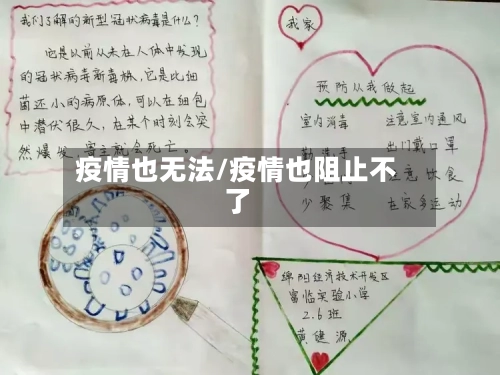 我们了解的新型冠状病毒是什么?
它是以前从未在人体中发现
的冠状病毒新毒株,它是比细
菌还小的病原体,可以在细包
中潜伏很久,在某个时刻会突
然爆发
寄主就会死亡.
我家
预防从我做起
室内消毒
注意室内通风
勤洗手
出门戴口罩
注意饮食
少聚集
在家多运动
疫情也无法/疫情也阻止不
了
绵阳经济技术开发区
富临实验小学
2.6班
黄健源